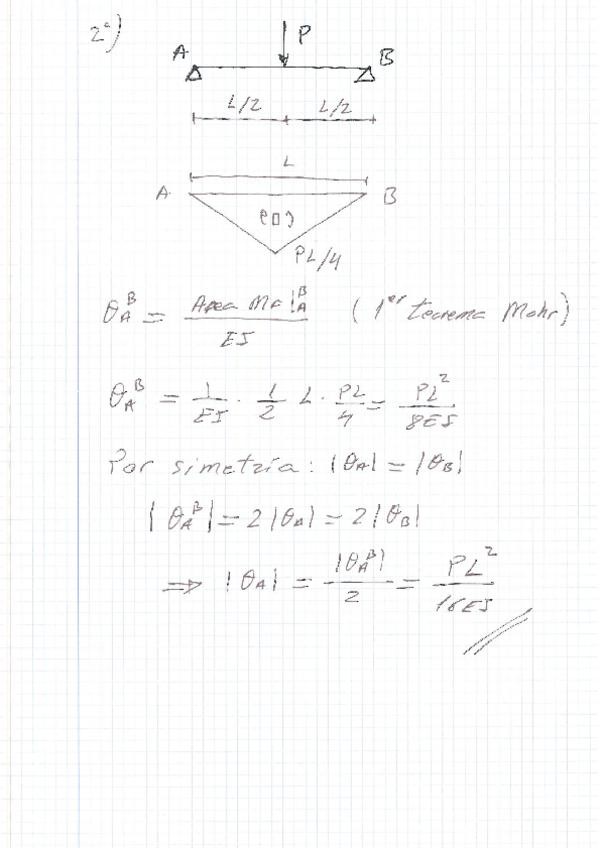 2º)
P
A B
L/2 L/2
L
A B
PL/4
θ_A^B = Area Mf|_A^B / EI (1er teorema Mohr)
θ_A^B = 1/EI · 1/2 L · PL/4 = PL²/8EI
Por simetría: |θA| = |θB|
|θ_A^B| = 2|θA| = 2|θB|
⇒ |θA| = |θ_A^B|/2 = PL²/16EI